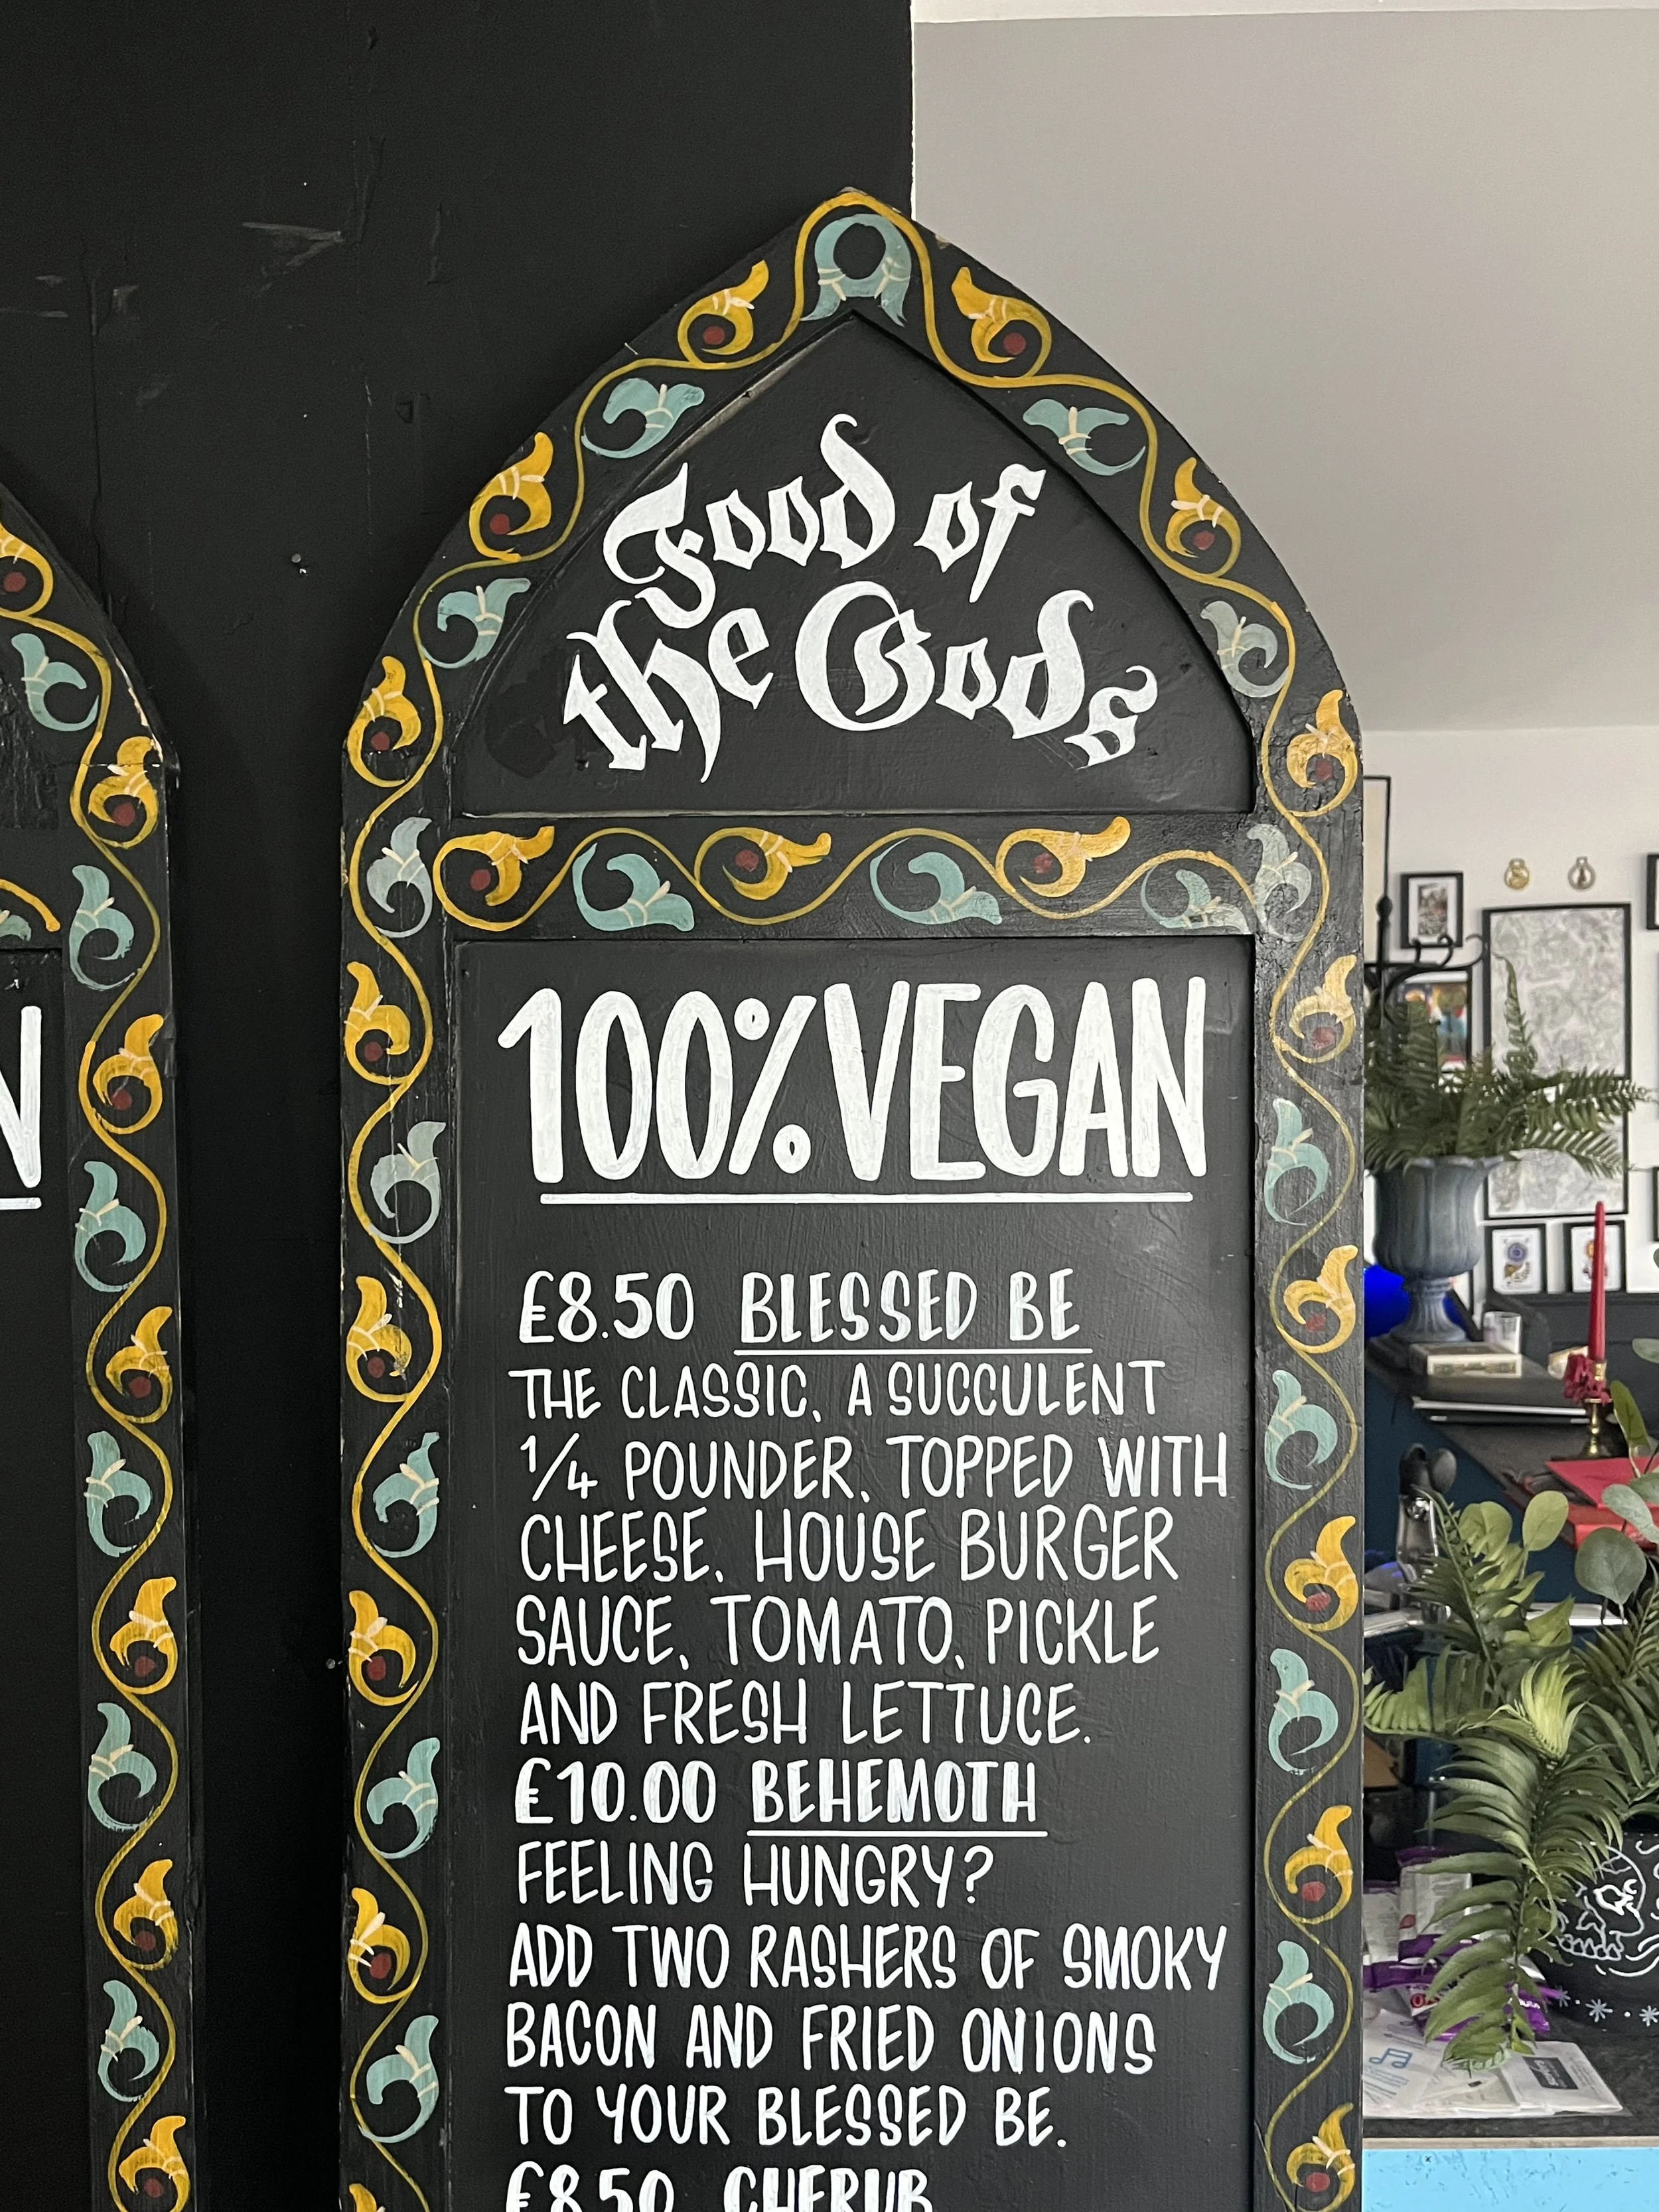 Food of
the Gods
100% VEGAN
£8.50 BLESSED BE
THE CLASSIC, A SUCCULENT
1/4 POUNDER, TOPPED WITH
CHEESE, HOUSE BURGER
SAUCE, TOMATO, PICKLE
AND FRESH LETTUCE.
£10.00 BEHEMOTH
FEELING HUNGRY?
ADD TWO RASHERS OF SMOKY
BACON AND FRIED ONIONS
TO YOUR BLESSED BE.
£8.50 CHERUB
N